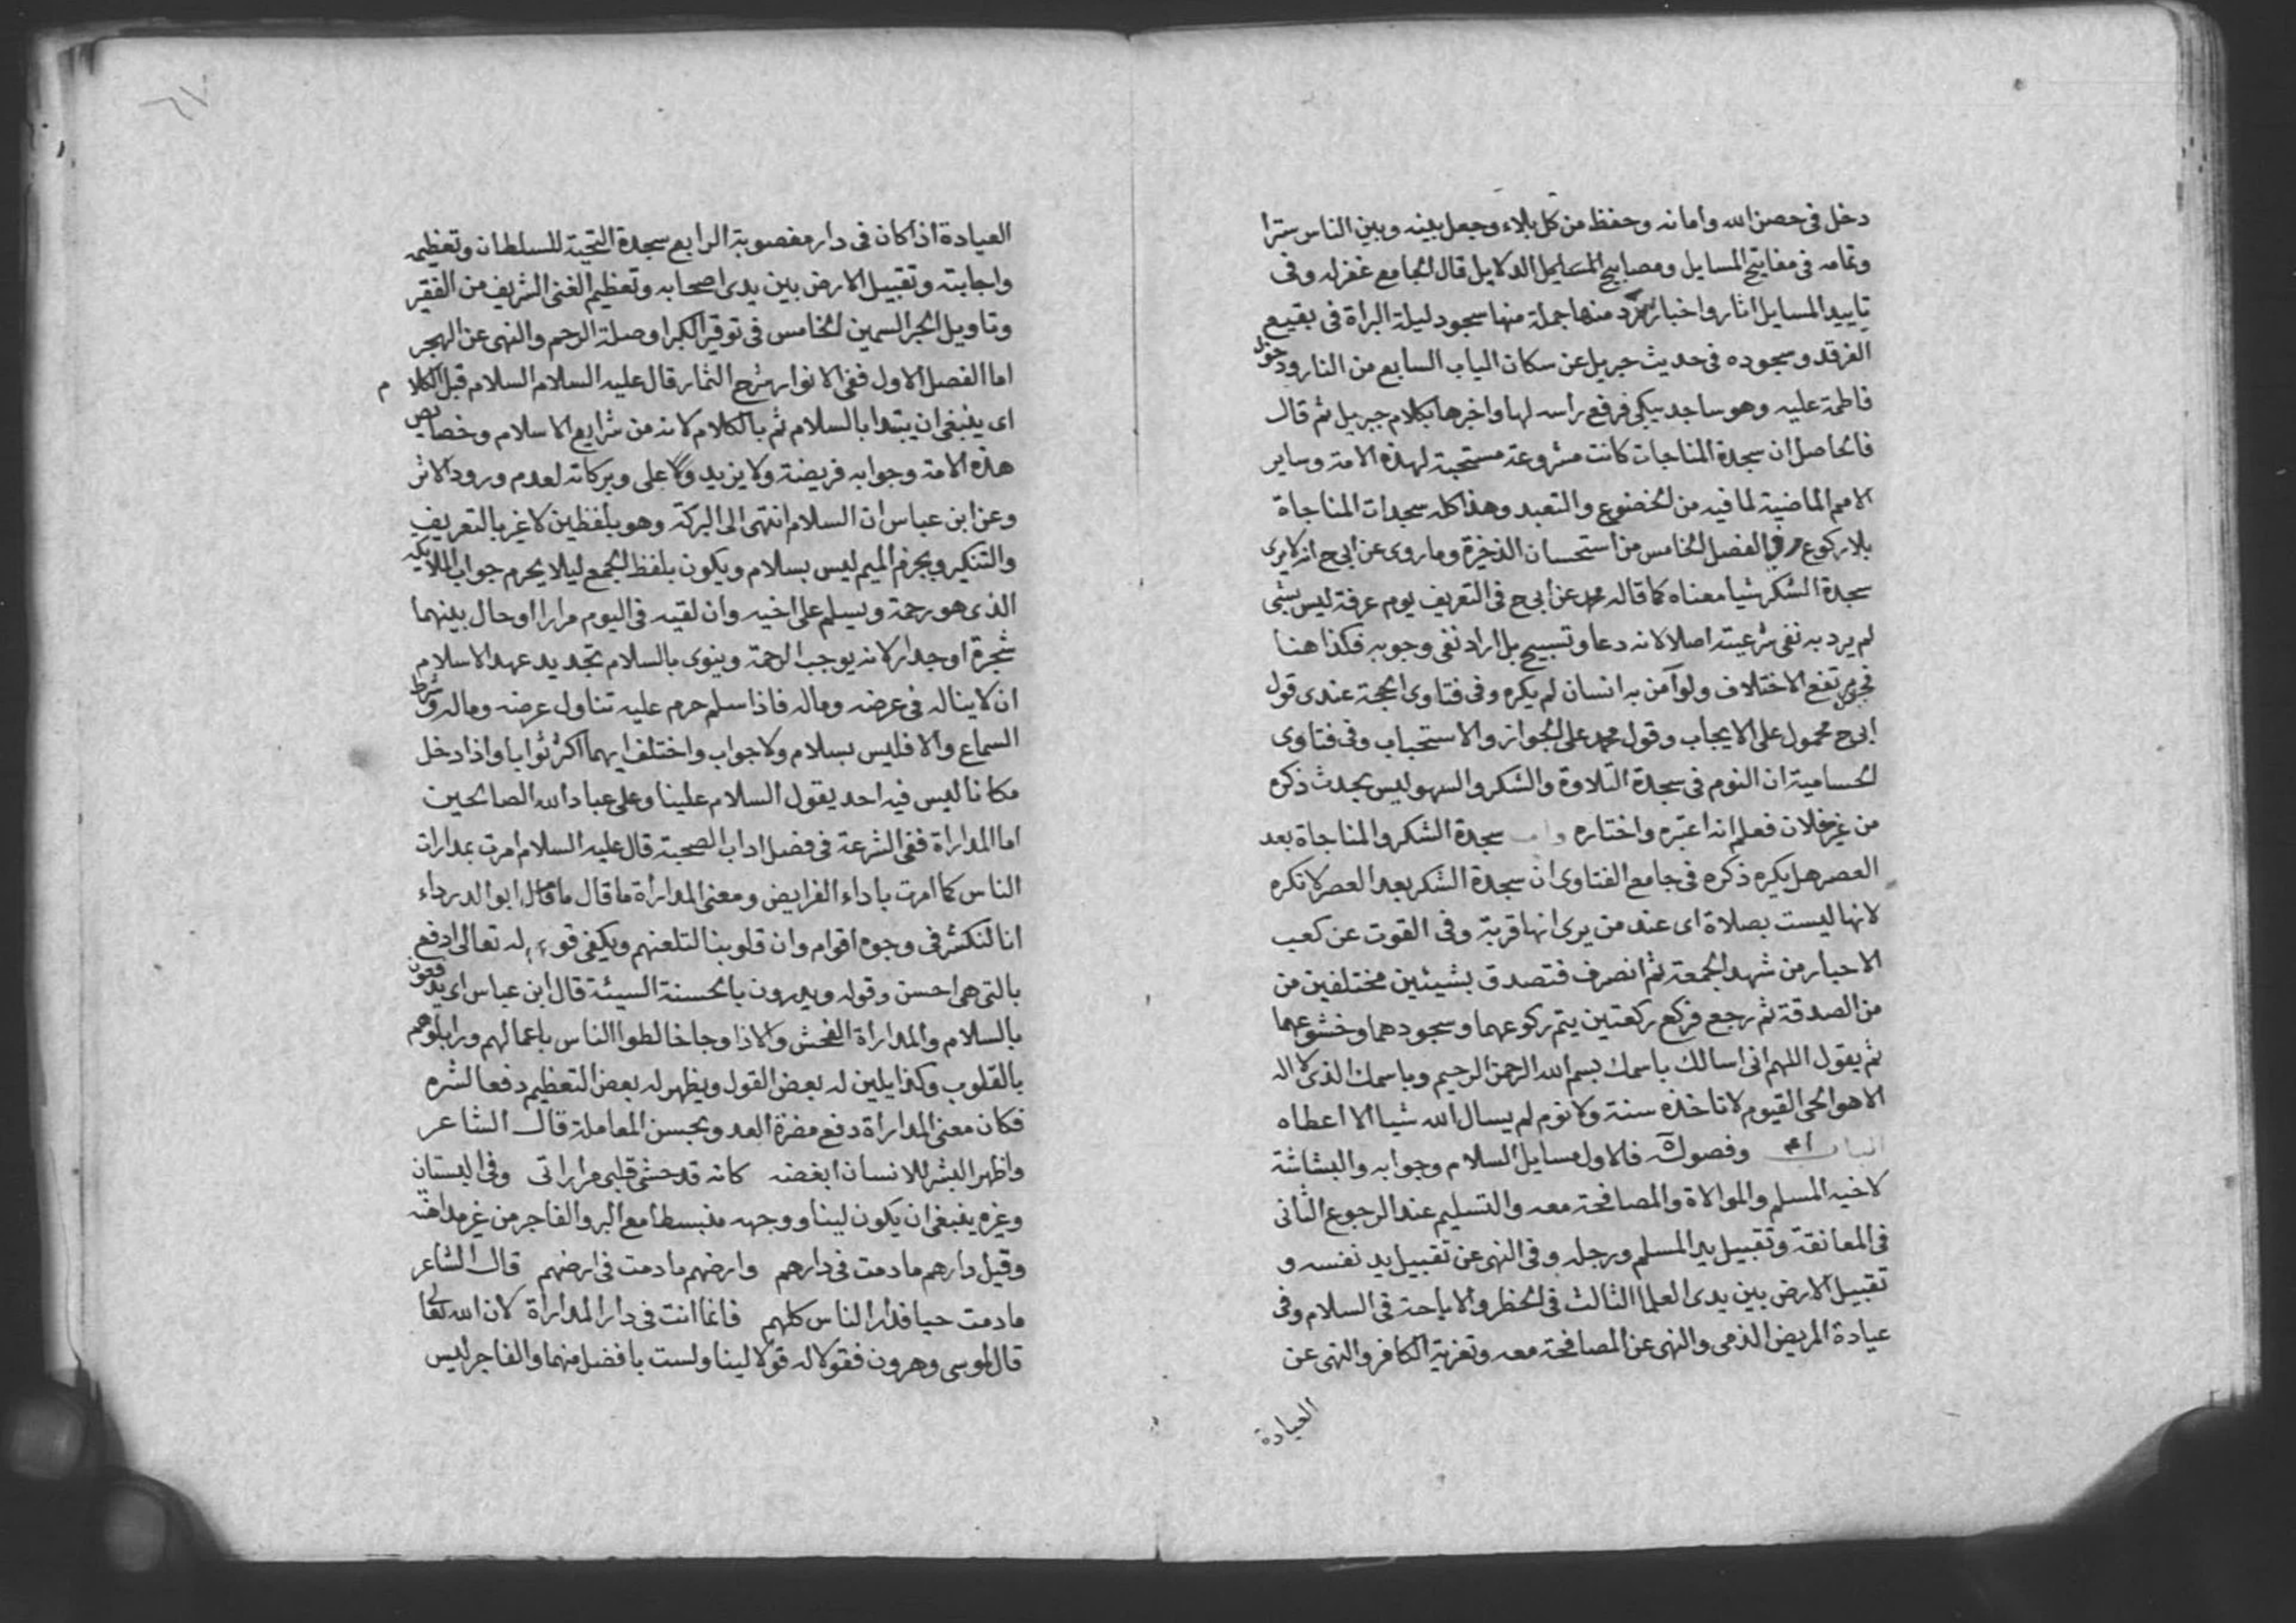 دخل فى حصن الله وامانه وحفظ من كل بلاء وجعل بينه وبين الناس سترا
وتمامه فى مفاتيح المسايل ومصابيح الدلايل قال الجامع غفرله وفى
تاييد المسايل اثار واخبار نورد منها جملة منها سجود ليلة البراة فى بقيع
الغرقد وسجوده فى حديث جبريل عن سكان الباب السابع من النار ودخول
فاطمة عليه وهو ساجد يبكى فرفع راسه لها واخرها بكلام جبريل ثم قال
فالحاصل ان سجدة المناجات كانت مشروعة مستحبة لهذه الامة وساير
الامم الماضية لما فيه من الخضوع والتعبد وهذا كله سجدات المناجاة
بلا ركوع وفى الفصل الخامس من استحسان الذخيرة وما روى عن ابى ح انه لا يرى
سجدة الشكر شيا معناه كما قاله محمد عن ابى ح فى التعريف يوم عرفة ليس بشى
لم يرد به نفى شرعيته اصلا لانه دعا وتسبيح بل اراد نفى وجوبه فكذا هنا
الاختلاف ولو آمن به انسان لم يكره وفى فتاوى الحجة عندى قول
ابى ح محمول على الايجاب وقول محمد على الجواز والاستحباب وفى فتاوى
الحسامية ان النوم فى سجدة التلاوة والشكر والسهو ليس بحدث ذكره
من غير خلاف فعلم انه اعتبره واختاره سجدة الشكر والمناجاة بعد
العصر هل يكره ذكره فى جامع الفتاوى ان سجدة الشكر بعد العصر لا تكره
لانها ليست بصلاة اى عند من يرى انها قربة وفى القوت عن كعب
الاحبار من شهد الجمعة ثم انصرف فتصدق بشيئين مختلفين من
من الصدقة ثم رجع فركع ركعتين يتم ركوعهما وسجودهما وخشوعهما
ثم يقول اللهم انى اسالك باسمك بسم الله الرحمن الرحيم وباسمك الذى لا اله
الا هو الحى القيوم لا تاخذه سنة ولا نوم لم يسال الله شيا الا اعطاه
وفصوله فالاول مسايل السلام وجوابه والبشاشة
لاخيه المسلم والموالاة والمصافحة معه والتسليم عند الرجوع الثانى
فى المعانقة وتقبيل يد المسلم ورجله وفى النهى عن تقبيل يد نفسه و
تقبيل الارض بين يدى العلما الثالث فى الحظر والاباحة فى السلام وفى
عيادة المريض الذمى والنهى عن المصافحة معه وتعزية الكافر والنهى عن
العيادة
٦٧
العيادة اذا كان فى دار مغصوبة الرابع سجدة التحية للسلطان وتعظيمه
واجابته وتقبيل الارض بين يدى اصحابه وتعظيم الغنى الشريف من الفقير
وتاويل الحبر السمين الخامس فى توقير الكبرا وصلة الرحم والنهى عن الهجر
اما الفصل الاول ففى الانوار شرح الثمار قال عليه السلام السلام قبل الكلام
اى ينبغى ان يبتدا بالسلام ثم بالكلام لانه من شرايع الاسلام وخصايص
هذه الامة وجوابه فريضة ولا يزيد على وبركاته لعدم ورود الاثر
وعن ابن عباس ان السلام انتهى الى البركة وهو بلفظين لاغير بالتعريف
والتنكير وبجزم الميم ليس بسلام ويكون بلفظ الجمع ليلا يحرم جواب الملايكة
الذى هو رحمة ويسلم على اخيه وان لقيه فى اليوم مرارا او حال بينهما
شجرة او جدار لانه يوجب الرحمة وينوى بالسلام تجديد عهد الاسلام
ان لا يناله فى عرضه وماله فاذا سلم حرم عليه تناول عرضه وماله وشرط
السماع والا فليس بسلام ولا جواب واختلف ايهما اكثر ثوابا واذا دخل
مكانا ليس فيه احد يقول السلام علينا وعلى عباد الله الصالحين
اما المداراة ففى الشرعة فى فضل اداب الصحبة قال عليه السلام امرت بمدارات
الناس كما امرت باداء الفرايض ومعنى المداراة ما قال ما قال ابو الدرداء
انا لنكشر فى وجوه اقوام وان قلوبنا لتلعنهم ويكفى قوله تعالى ادفع
بالتى هى احسن وقوله ويدرون بالحسنة السيئة قال ابن عباس اى يدفعون
بالسلام والمداراة الفحش والاذا وجا خالطوا الناس باعمالهم وزايلوهم
بالقلوب وكذا يلين له بعض القول ويظهر له بعض التعظيم دفعا لشره
فكان معنى المداراة دفع مضرة العدو بحسن المعاملة قال الشاعر
واظهر البشر للانسان ابغضه كانه قد حشى قلبى مراراتى وفى البستان
وغيره ينبغى ان يكون لينا ووجهه منبسطا مع البر والفاجر من غير مداهنة
وقيل دارهم ما دمت فى دارهم وارضهم ما دمت فى ارضهم قال الشاعر
ما دمت حيا فدار الناس كلهم فانما انت فى دار المداراة لان الله تعالى
قال لموسى وهرون فقولا له قولا لينا ولست بافضل منهما والفاجر ليس